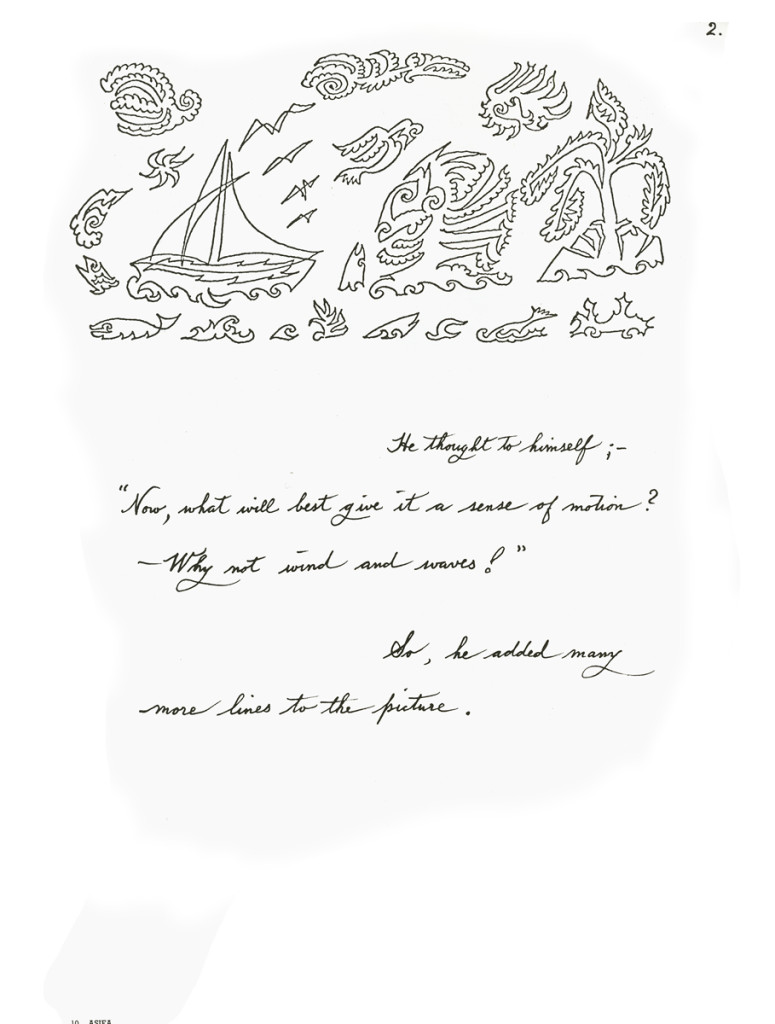 2.
He thought to himself ;–
"Now, what will best give it a sense of motion?
– Why not wind and waves!"
So, he added many
more lines to the picture.
10 ASIFA